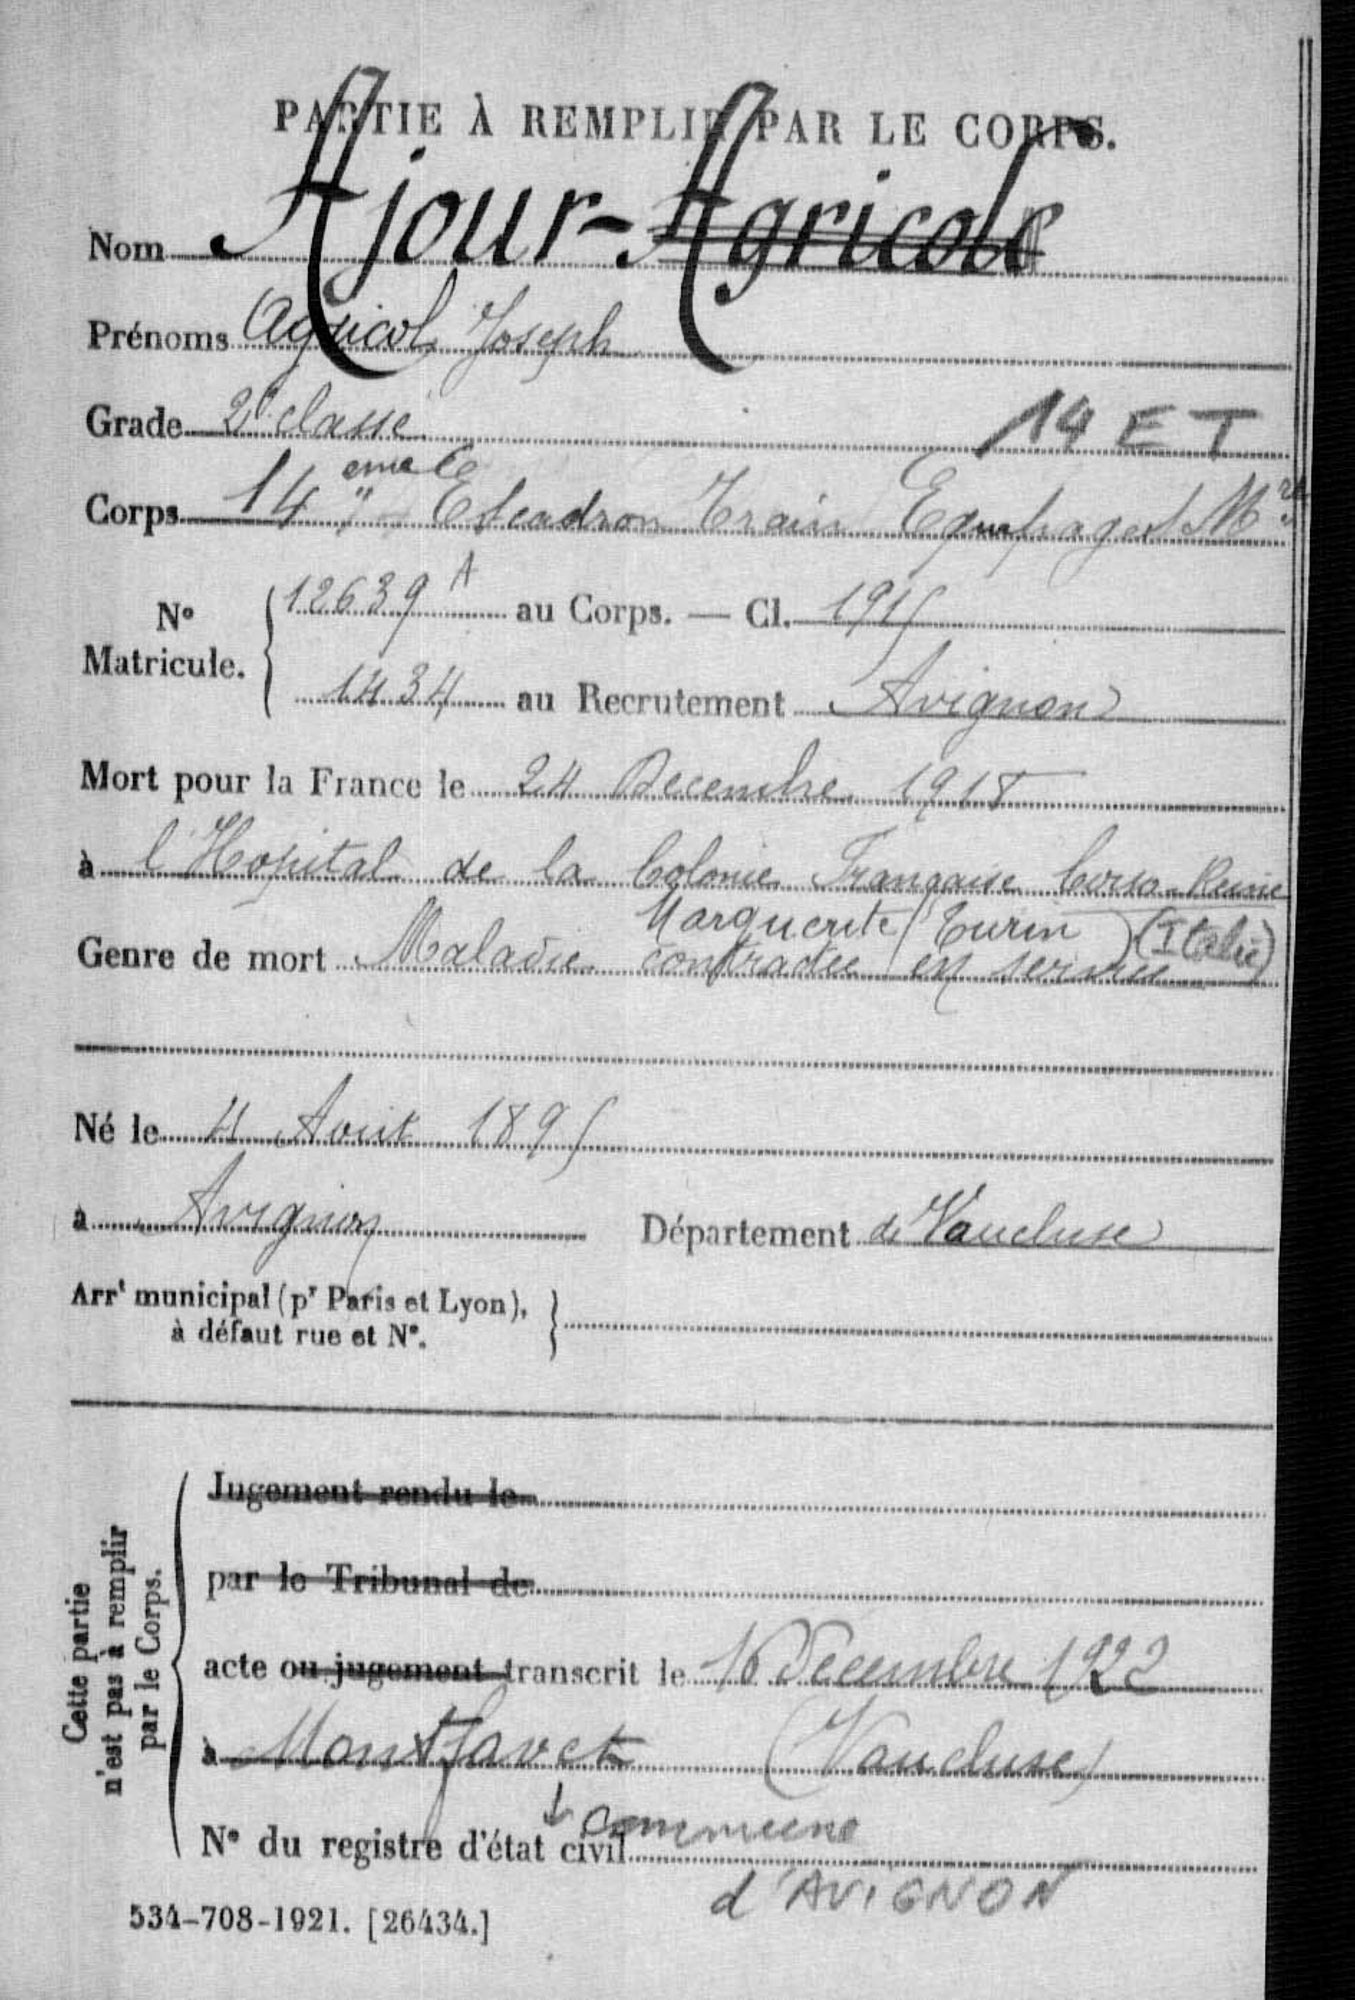 PARTIE À REMPLIR PAR LE CORPS.
Nom Ajour-Agricole
Prénoms Agricol Joseph
Grade 2e classe
14 ET
Corps 14 eme Escadron Train Equipages Mres
No Matricule. 12639 A au Corps. — Cl. 1915
1434 au Recrutement Avignon
Mort pour la France le 24 Decembre 1918
à l'Hopital de la Colonie Française Corso Reine
Marguerite (Turin) (Italie)
Genre de mort Maladie contractée en service
Né le 4 Aout 1895
à Avignon Département de Vaucluse
Arrt municipal (pr Paris et Lyon),
à défaut rue et No.
Cette partie
n'est pas à remplir
par le Corps.
Jugement rendu le
par le Tribunal de
acte ou jugement transcrit le 16 Décembre 1922
à Montfavet (Vaucluse)
↓ commune
No du registre d'état civil
d'AVIGNON
534-708-1921. [26434.]